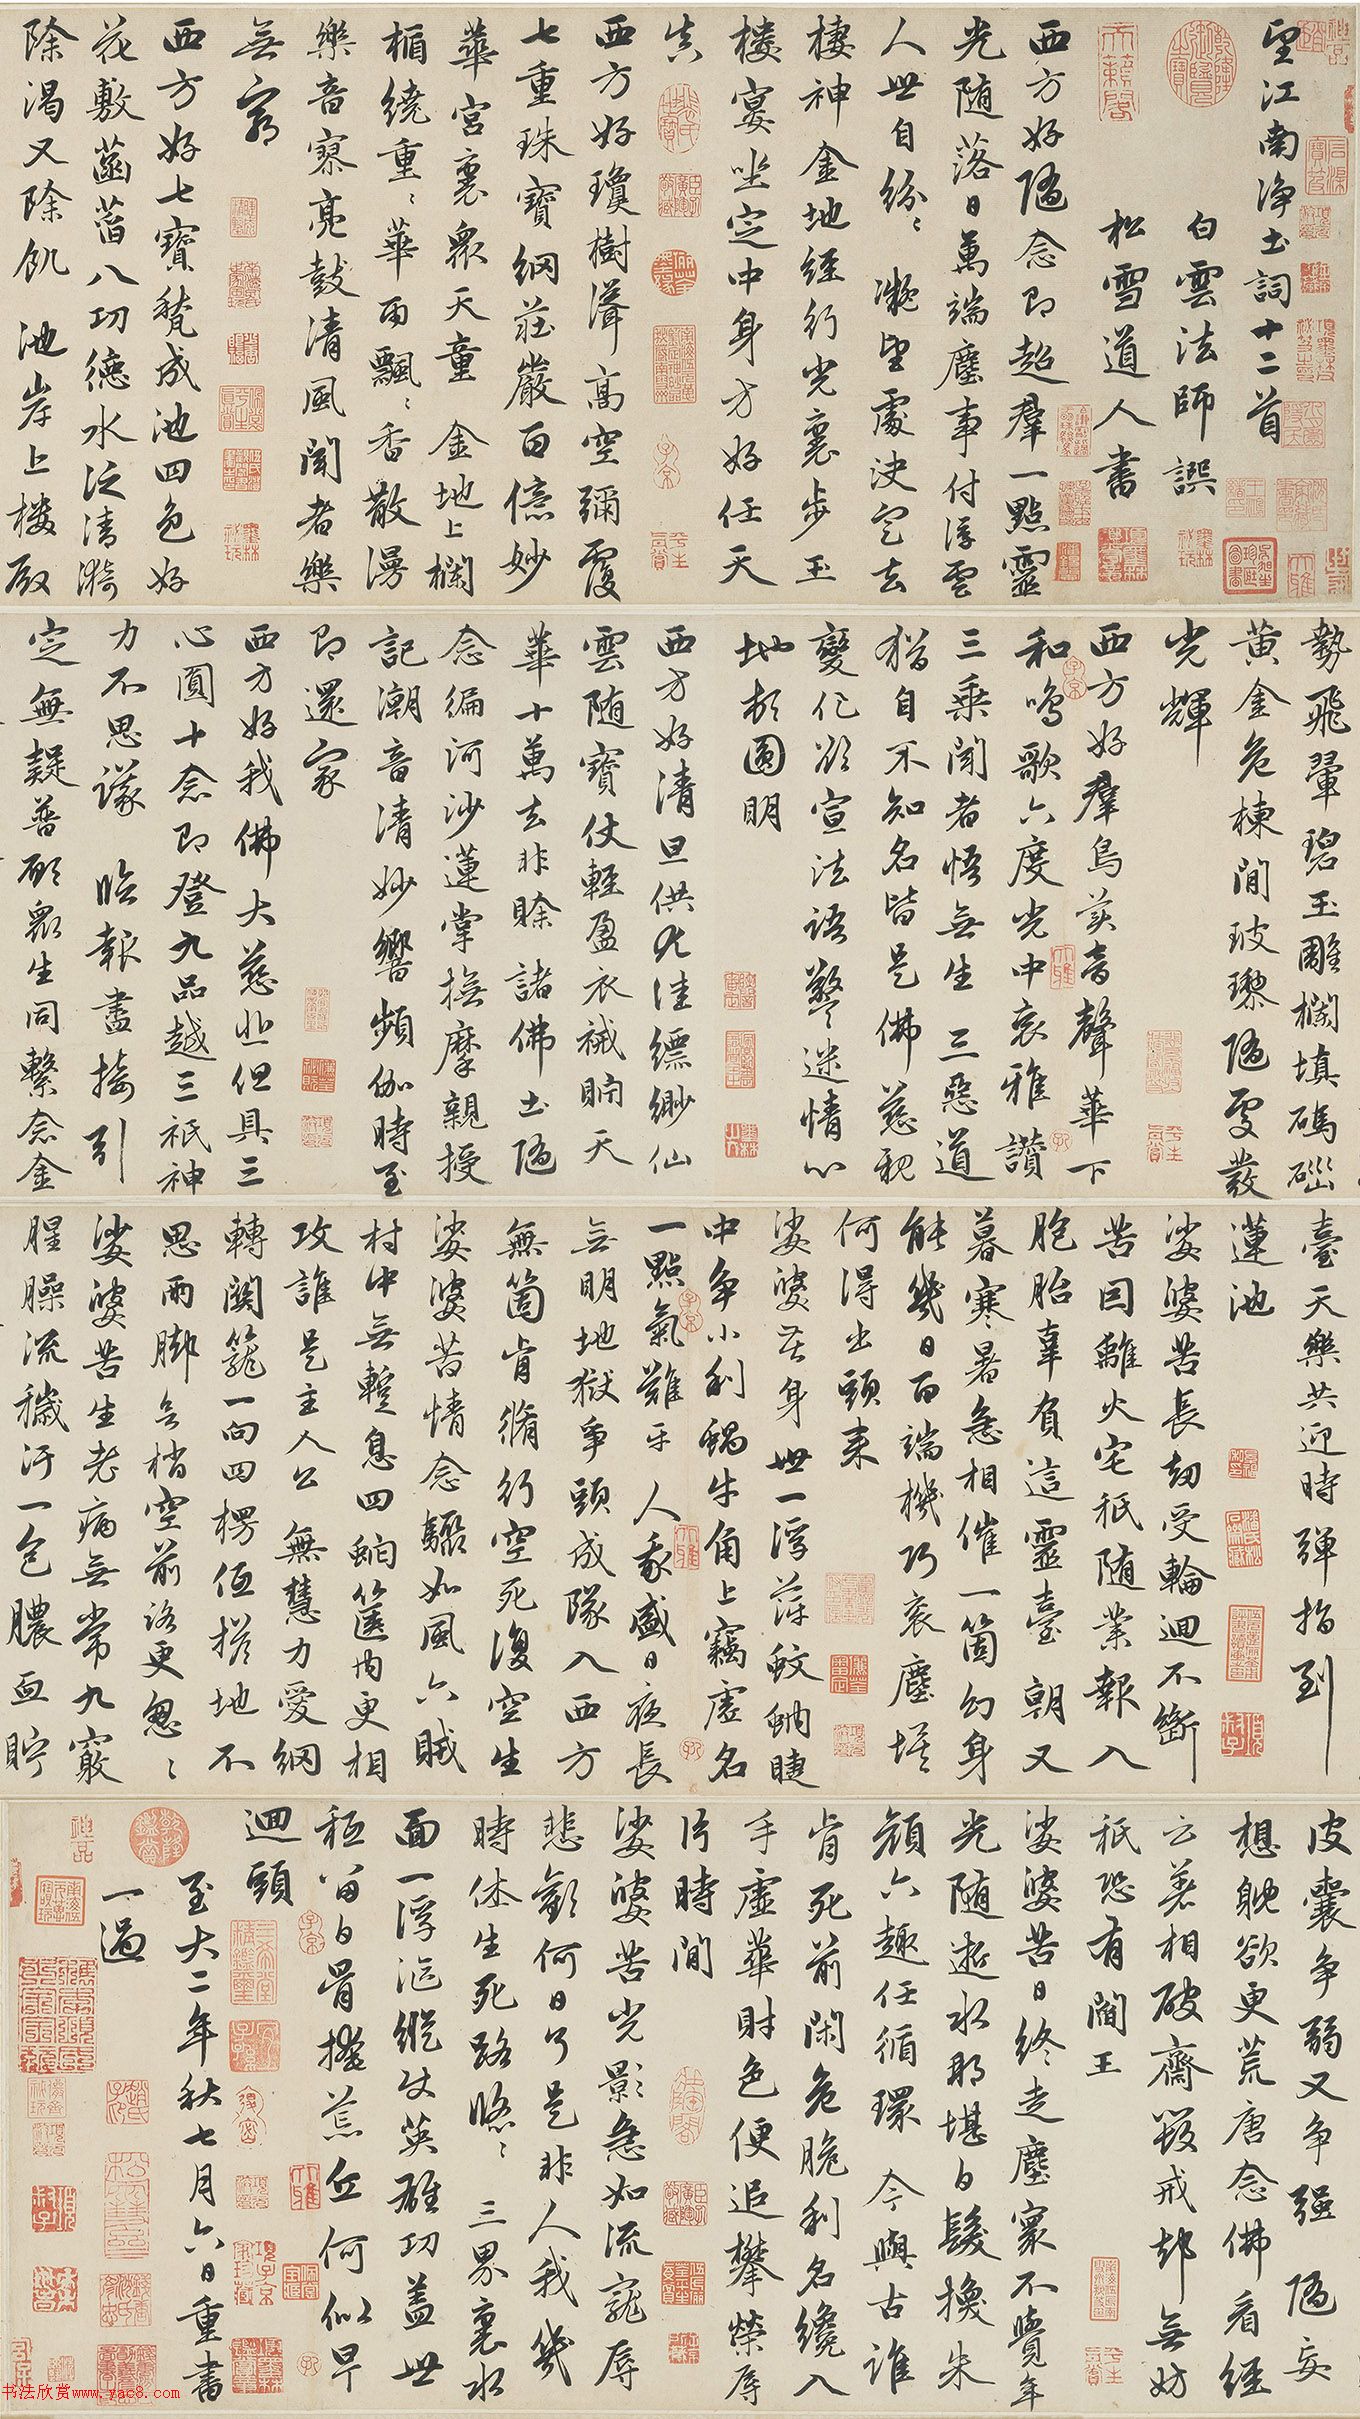 望江南淨土詞十二首
白雲法師譔
松雪道人書
西方好隨念即超羣一點靈
光随落日萬端塵事付浮雲
人世自紛〻凝望處決定去
棲神金地經行光裏步玉
樓宴坐定中身方好任天
真
西方好瓊樹聳高空彌覆
七重珠寶網莊嚴百億妙
華宮裏衆天童金地上欄
楯繞重〻華雨飄〻香散漫
樂音寥亮鼓清風聞者樂
無窮
西方好七寶甃成池四色好
花敷菡萏八功德水泛清漪
除渴又除飢池岸上樓殿
勢飛翬碧玉雕欄填碼碯
黃金危棟間玻瓈隨處發
光輝
西方好羣鳥美音聲華下
和鳴歌六度光中哀雅讚
三乗聞者悟無生三惡道
猶自不知名皆是佛慈親
變化欲宣法語警迷情心
地頓圓明
西方好清旦供尤佳縹緲仙
雲随寶仗輕盈衣祴眄天
華十萬去非賒諸佛土隨
念徧河沙蓮掌撫摩親授
記潮音清妙響頻伽時至
即還家
西方好我佛大慈悲但具三
心圓十念即登九品越三祇神
力不思議臨報盡接引
定無疑普願衆生同繫念金
臺天樂共迎時彈指到
蓮池
娑婆苦長劫受輪迴不斷
苦因離火宅秖随業報入
胞胎辜負這靈臺朝又
暮寒暑急相催一箇幻身
能幾日百端機巧衮塵埃
何得出頭來
娑婆苦身世一浮萍蚊蚋睫
中争小利蝸牛角上竊虛名
一點氣難平人我盛日夜長
無明地獄争頭成隊入西方
無箇肯脩行空死復空生
娑婆苦情念驟如風六賊
村中無蹔息四蛇篋内更相
攻誰是主人公無慧力愛網
轉關籠一向四楞低搭地不
思兩脚無梢空前路更怱〻
娑婆苦生老病無常九竅
腥臊流穢汙一包膿血貯
皮囊争弱又争强隨妄
想躭欲更荒唐念佛看經
云著相破齋毀戒却無妨
秖恐有閻王
娑婆苦日終走塵寰不覺年
光随逝水那堪白髮換朱
顔六趣任循環今與古誰
肯死前閑危脆利名纔入
手虛華財色便追攀榮辱
片時間
娑婆苦光影急如流寵辱
悲歡何日了是非人我幾
時休生死路悠〻三界裏水
面一浮漚縱使英雄功蓋世
秖留白骨掩荒丘何似早
迴頭
至大二年秋七月六日重書
一過
书法欣赏www.yac8.com